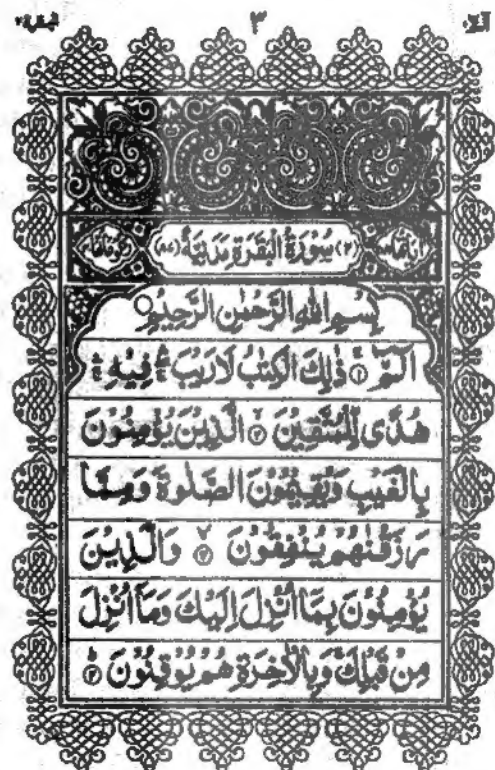 الٓمّٓ ٣ البقرة ٢
اٰیاتها (٢) سُوْرَةُ الْبَقَرَةِ مَدَنِيَّةٌ (٨٧)
بِسْمِ اللهِ الرَّحْمٰنِ الرَّحِيْمِ
الٓمّٓ ۚ ﴿١﴾ ذٰلِكَ الْكِتٰبُ لَا رَيْبَ ۛ فِيْهِ ۛ
هُدًى لِّلْمُتَّقِيْنَ ۙ ﴿٢﴾ الَّذِيْنَ يُؤْمِنُوْنَ
بِالْغَيْبِ وَيُقِيْمُوْنَ الصَّلٰوةَ وَمِمَّا
رَزَقْنٰهُمْ يُنْفِقُوْنَ ۙ ﴿٣﴾ وَالَّذِيْنَ
يُؤْمِنُوْنَ بِمَآ اُنْزِلَ اِلَيْكَ وَمَآ اُنْزِلَ
مِنْ قَبْلِكَ ۚ وَبِالْاٰخِرَةِ هُمْ يُوْقِنُوْنَ ؕ ﴿٤﴾